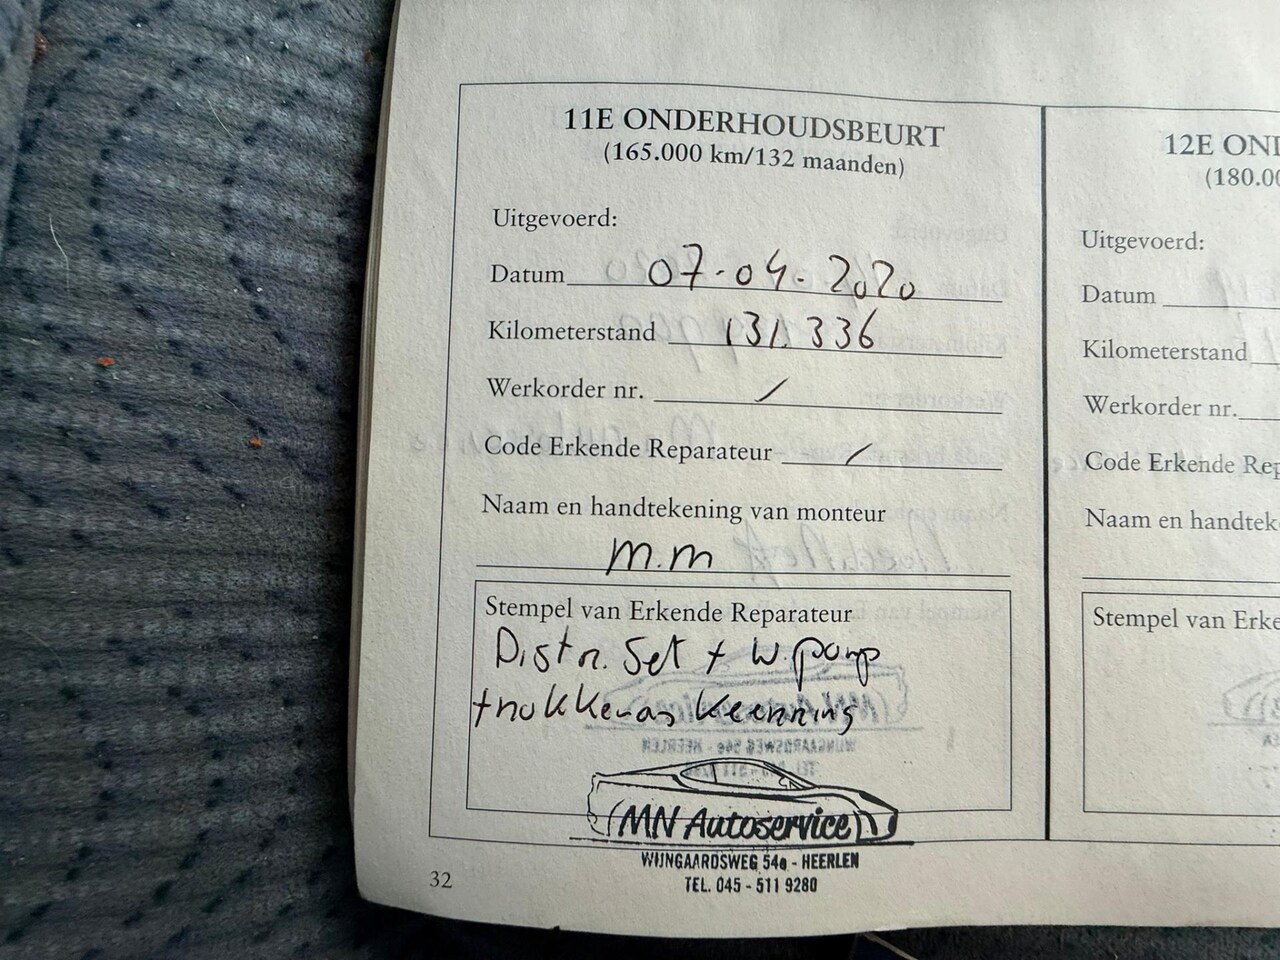 11E ONDERHOUDSBEURT
(165.000 km/132 maanden)
Uitgevoerd:
Datum 07-04-2020
Kilometerstand 131.336
Werkorder nr. /
Code Erkende Reparateur /
Naam en handtekening van monteur
m.m
Stempel van Erkende Reparateur
Distr. Set + W.pomp
+ nokkenas keerring
MN Autoservice
WIJNGAARDSWEG 54a - HEERLEN
TEL. 045 - 511 9280
32
12E OND
(180.00
Uitgevoerd:
Datum
Kilometerstand
Werkorder nr.
Code Erkende Rep
Naam en handtek
Stempel van Erke